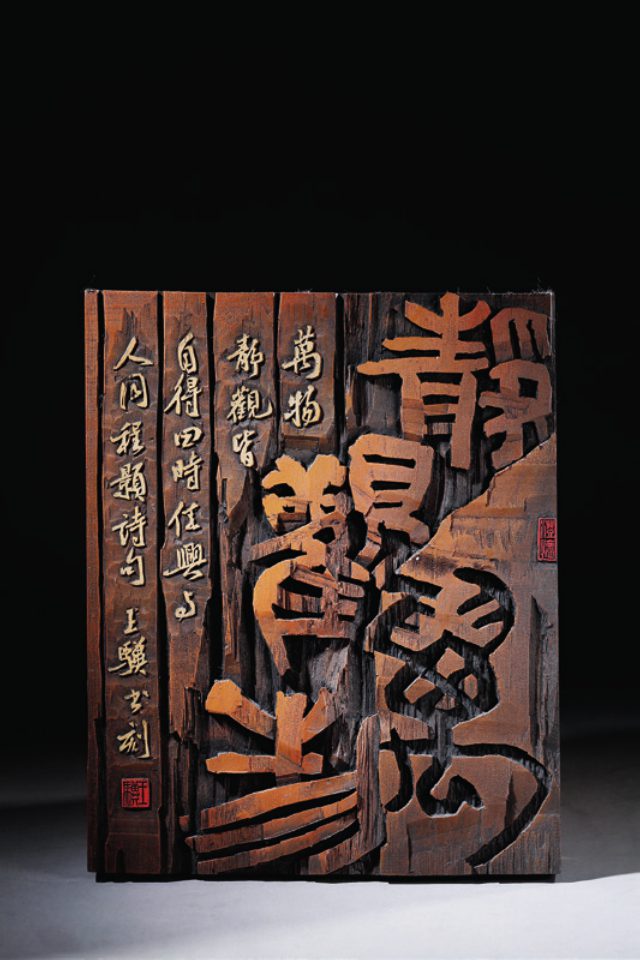 靜觀
萬物
萬物
靜觀皆
自得四時佳興与
人同程顥詩句 王 书刻